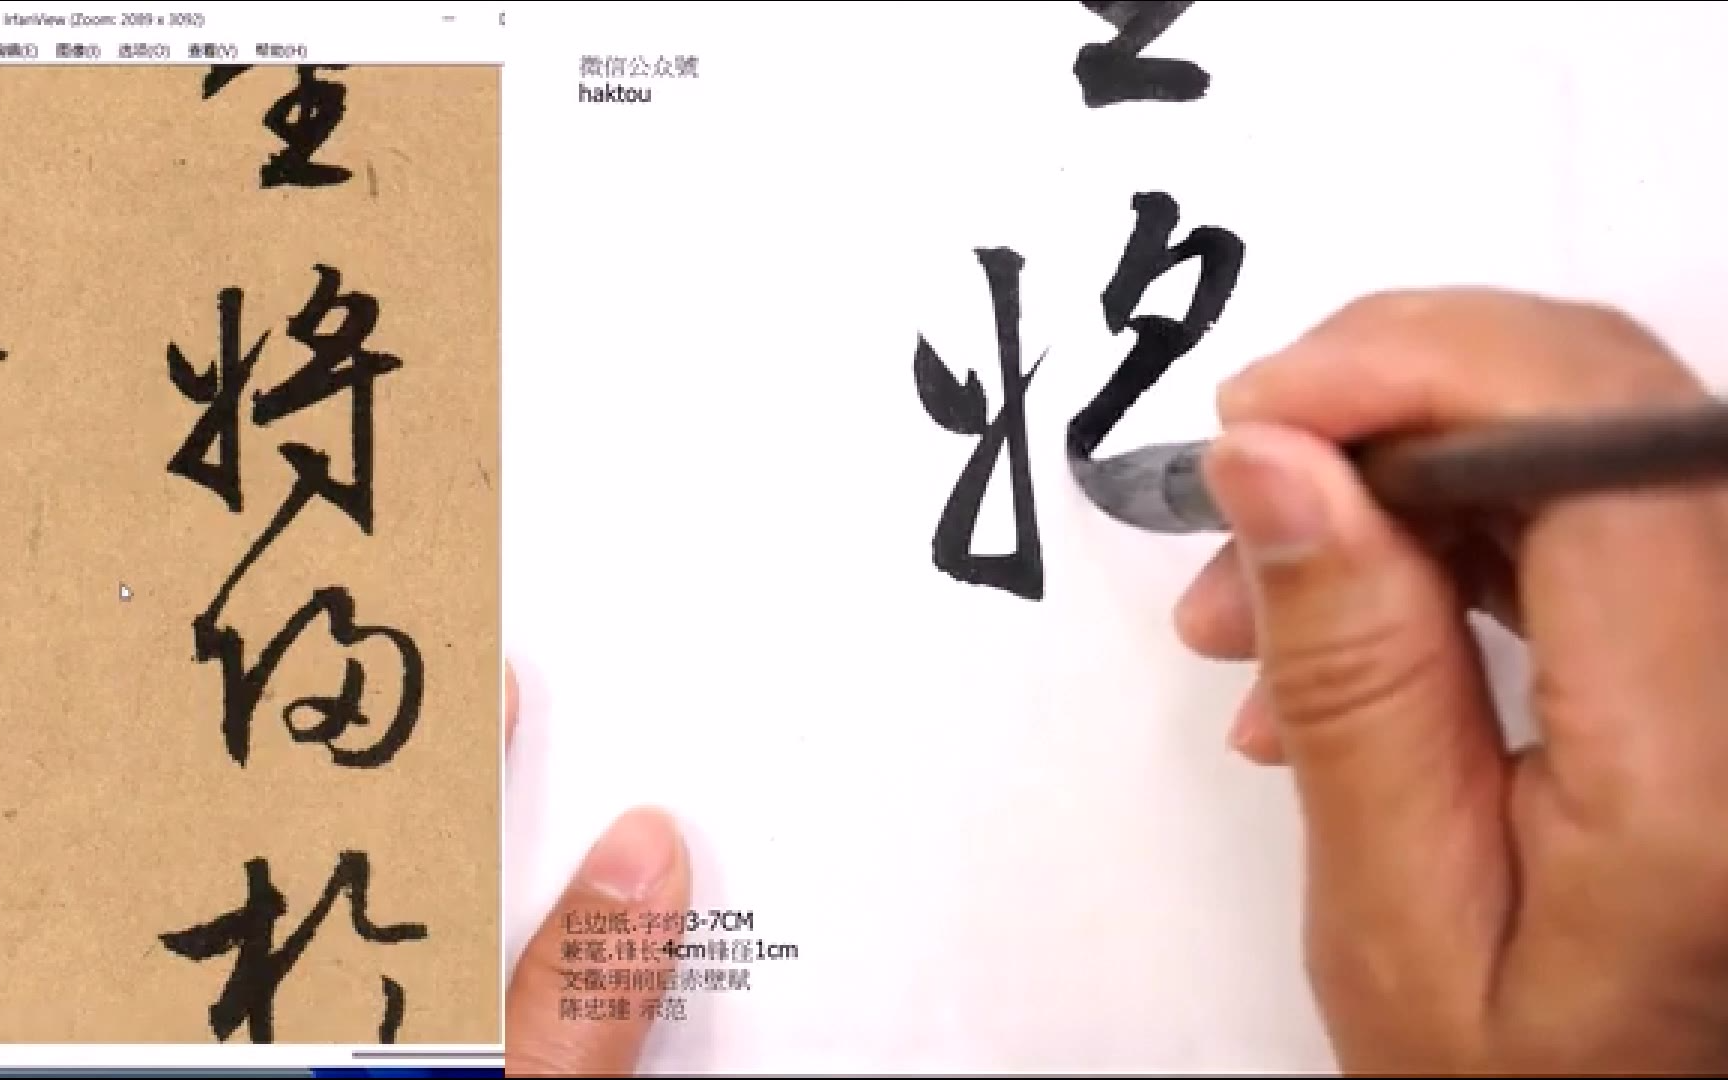 IrfanView (Zoom: 2089 x 3092)
编辑(E) 图像(I) 选项(O) 查看(V) 帮助(H)
將
歸
於
微信公众號
haktou
毛边纸.字约3-7CM
兼毫.锋长4cm锋径1cm
文徵明前后赤壁赋
陈忠建 示范